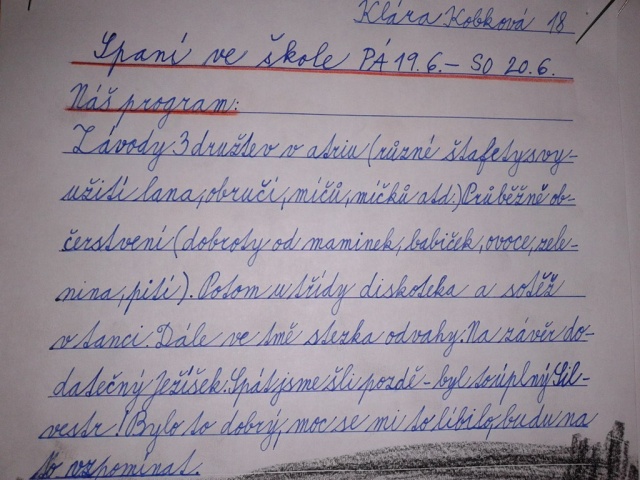 Klára Kobková 18
Spaní ve škole PÁ 19.6. – SO 20.6.
Náš program:
Závody 3 družtev v atriu (různé štafety s vy-
užití lana, obručí, míčů, míčků atd.) Průběžně ob-
čerstvení (dobroty od maminek, babiček, ovoce, zele-
nina, pití). Potom u třídy diskoteka a sotěž
v tanci. Dále ve tmě stezka odvahy. Na závěr do-
datečný Ježíšek. Spát jsme šli pozdě – byl to úplný Sil-
vestr! Bylo to dobrý, moc se mi to líbilo, budu na
to vzpomínat.